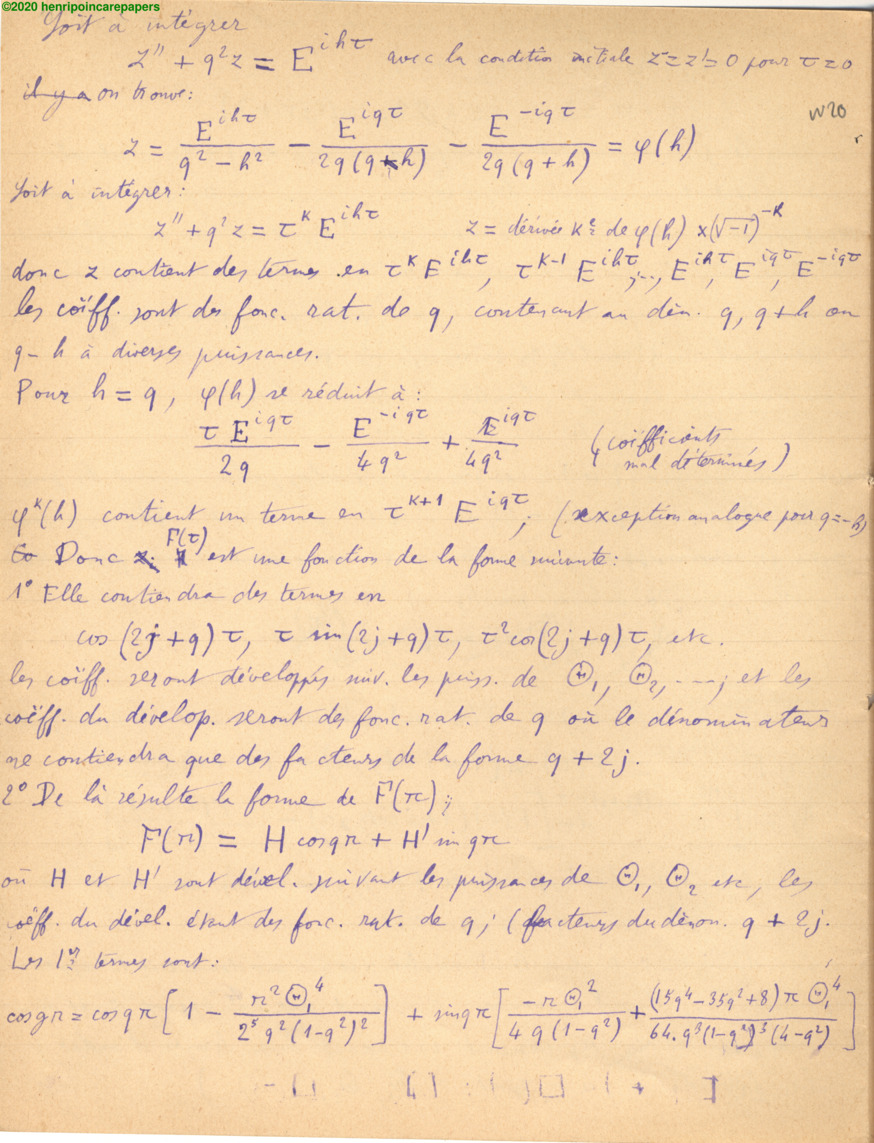 ©2020 henripoincarepapers
Soit à intégrer
z'' + q²z = E^{ihτ} avec la condition initiale z=z'=0 pour τ=0
il y a on trouve:
W20
z = E^{ihτ}/(q²-h²) - E^{iqτ}/(2q(q-h)) - E^{-iqτ}/(2q(q+h)) = φ(h)
Soit à intégrer:
z'' + q²z = τ^K E^{ihτ} z = dérivée K^e de φ(h) × (√-1)^{-K}
donc z contient des termes en τ^K E^{ihτ}, τ^{K-1} E^{ihτ}, ..., E^{ihτ}, E^{iqτ}, E^{-iqτ}
les coëff. sont des fonc. rat. de q, contenant au dén. q, q+h ou
q-h à diverses puissances.
Pour h = q, φ(h) se réduit à:
τE^{iqτ}/2q - E^{-iqτ}/4q² + E^{iqτ}/4q² (coëfficients
mal déterminés)
φ^K(h) contient un terme en τ^{K+1} E^{iqτ}; (exception analogue pour q=-h)
Donc F(τ) est une fonction de la forme suivante:
1° Elle contiendra des termes en
cos(2j+q)τ, τ sin(2j+q)τ, τ²cos(2j+q)τ, etc.
les coëff. seront développés suiv. les puiss. de Θ₁, Θ₂, ...; et les
coëff. du dévelop. seront des fonc. rat. de q où le dénominateur
ne contiendra que des facteurs de la forme q + 2j.
2° De là résulte la forme de F(π);
F(π) = H cosqπ + H' sinqπ
où H et H' sont dével. suivant les puissances de Θ₁, Θ₂ etc, les
coëff. du dével. étant des fonc. rat. de q; (facteurs du dénom. q + 2j.
Les 1^{ers} termes sont:
cosgπ = cosqπ [1 - π²Θ₁⁴/(2⁵q²(1-q²)²)] + sinqπ [-πΘ₁²/(4q(1-q²)) + (15q⁴-35q²+8)πΘ₁⁴/(64.q³(1-q²)³(4-q²))]